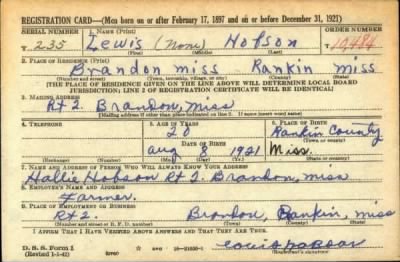 REGISTRATION CARD—(Men born on or after February 17, 1897 and on or before December 31, 1921)
SERIAL NUMBER 1. NAME (Print) ORDER NUMBER
235 Lewis (None) Hobson 10,484
(First) (Middle) (Last)
2. PLACE OF RESIDENCE (Print)
Brandon miss Rankin miss
(Number and street) (Town, township, village, or city) (County) (State)
[THE PLACE OF RESIDENCE GIVEN ON THE LINE ABOVE WILL DETERMINE LOCAL BOARD
JURISDICTION; LINE 2 OF REGISTRATION CERTIFICATE WILL BE IDENTICAL]
3. MAILING ADDRESS
Rt 2. Brandon, miss
[Mailing address if other than place indicated on line 2. If same insert word same]
4. TELEPHONE 5. AGE IN YEARS 6. PLACE OF BIRTH
20 Rankin County
DATE OF BIRTH (Town or county)
aug 8 1921 Miss.
(Exchange) (Number) (Mo.) (Day) (Yr.) (State or country)
7. NAME AND ADDRESS OF PERSON WHO WILL ALWAYS KNOW YOUR ADDRESS
Hallie Hobson Rt 2. Brandon, miss
8. EMPLOYER'S NAME AND ADDRESS
Farmer.
9. PLACE OF EMPLOYMENT OR BUSINESS
Rt 2. Brandon, Rankin, miss
(Number and street or R. F. D. number) (Town) (County) (State)
I AFFIRM THAT I HAVE VERIFIED ABOVE ANSWERS AND THAT THEY ARE TRUE.
D. S. S. Form 1
(Revised 1-1-42) (over)
(Registrant's signature)